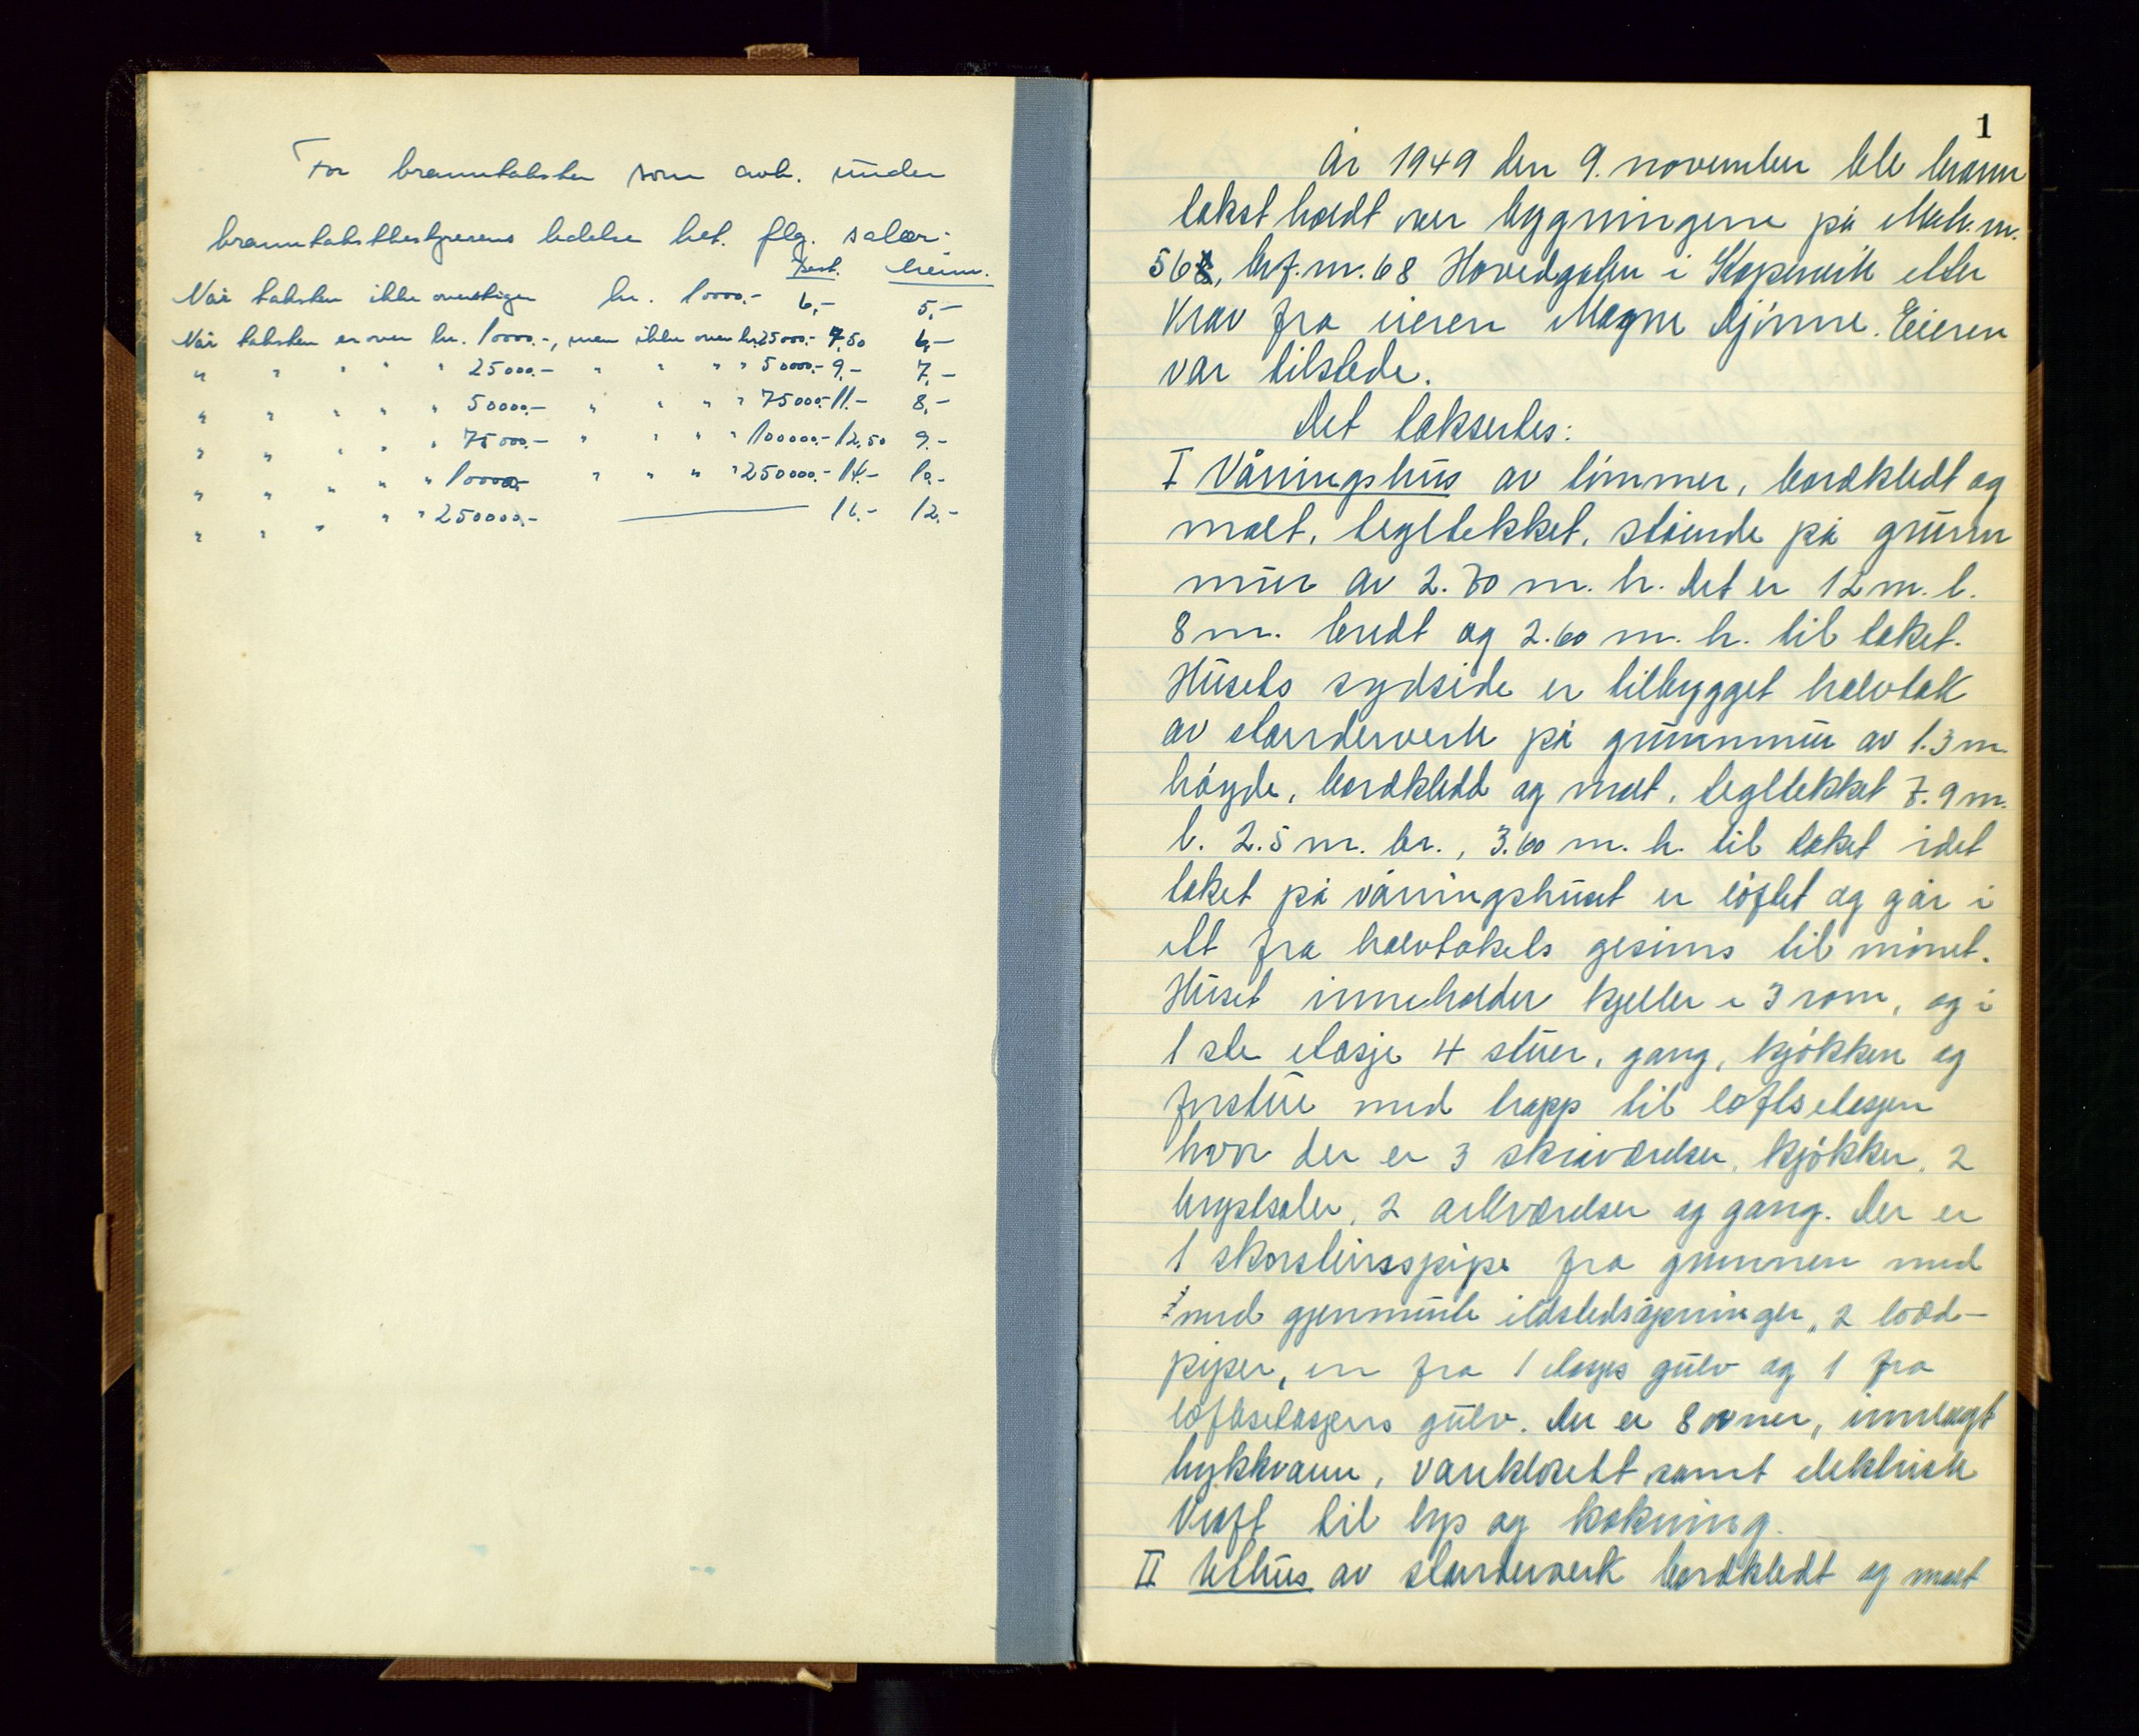 For branntaksten som avh. under
branntakstbestyrerens ledelse bet. flg. salær:
Best. Menn.
Når taksten ikke overstiger kr. 10000.- 6,- 5,-
Når taksten er over kr. 10000.-, men ikke over kr. 25000.- 7,50 6,-
" " " " " 25000.- " " " " 50000.- 9.- 7,-
" " " " " 50000.- " " " " 75000.- 11.- 8,-
" " " " " 75000.- " " " " 100000.- 12,50 9.-
" " " " " 100000.- " " " " 250000.- 14.- 10.-
" " " " " 250000.- 16.- 12.-
1
År 1949 den 9. november ble brann
takst holdt over bygningene på Matr. nr.
56, br. nr. 68 Hovedgaten i Kopervik etter
krav fra eieren Magne. Eieren
var tilstede.
Det taksertes:
I Våningshus av tømmer, bordkledt og
malt, tegltekket, stående på grunn
mur av 2.70 m. h. Det er 12 m. l.
8 m. bredt og 2.60 m. h. til taket.
Husets sydside er tilbygget halvtak
av standerverk på grunnmur av 1.3 m
høyde, bordkledd og malt, tegltekket 7.9 m.
l. 2.5 m. br., 3.60 m. h. til taket idet
taket på våningshuset er løftet og går i
ett fra halvtakets gesims til mønet.
Huset inneholder kjeller i 3 rom, og i
1ste etasje 4 stuer, gang, kjøkken og
forstue med trapp til loftsetasjen
hvor der er 3 skråværelser, kjøkken, 2
brystsaler, 2 arkværelser og gang. Der er
1 skorsteinspipe fra grunnen med
med gjenmurte ildstedsåpninger, 2 lodd-
piper, en fra 1 etasjes gulv og 1 fra
loftsetasjens gulv. Der er 8 ovner, innlagt
trykkvann, vannklosett samt elektrisk
kraft til lys og kokning.
II Uthus av standerverk bordkledt og malt